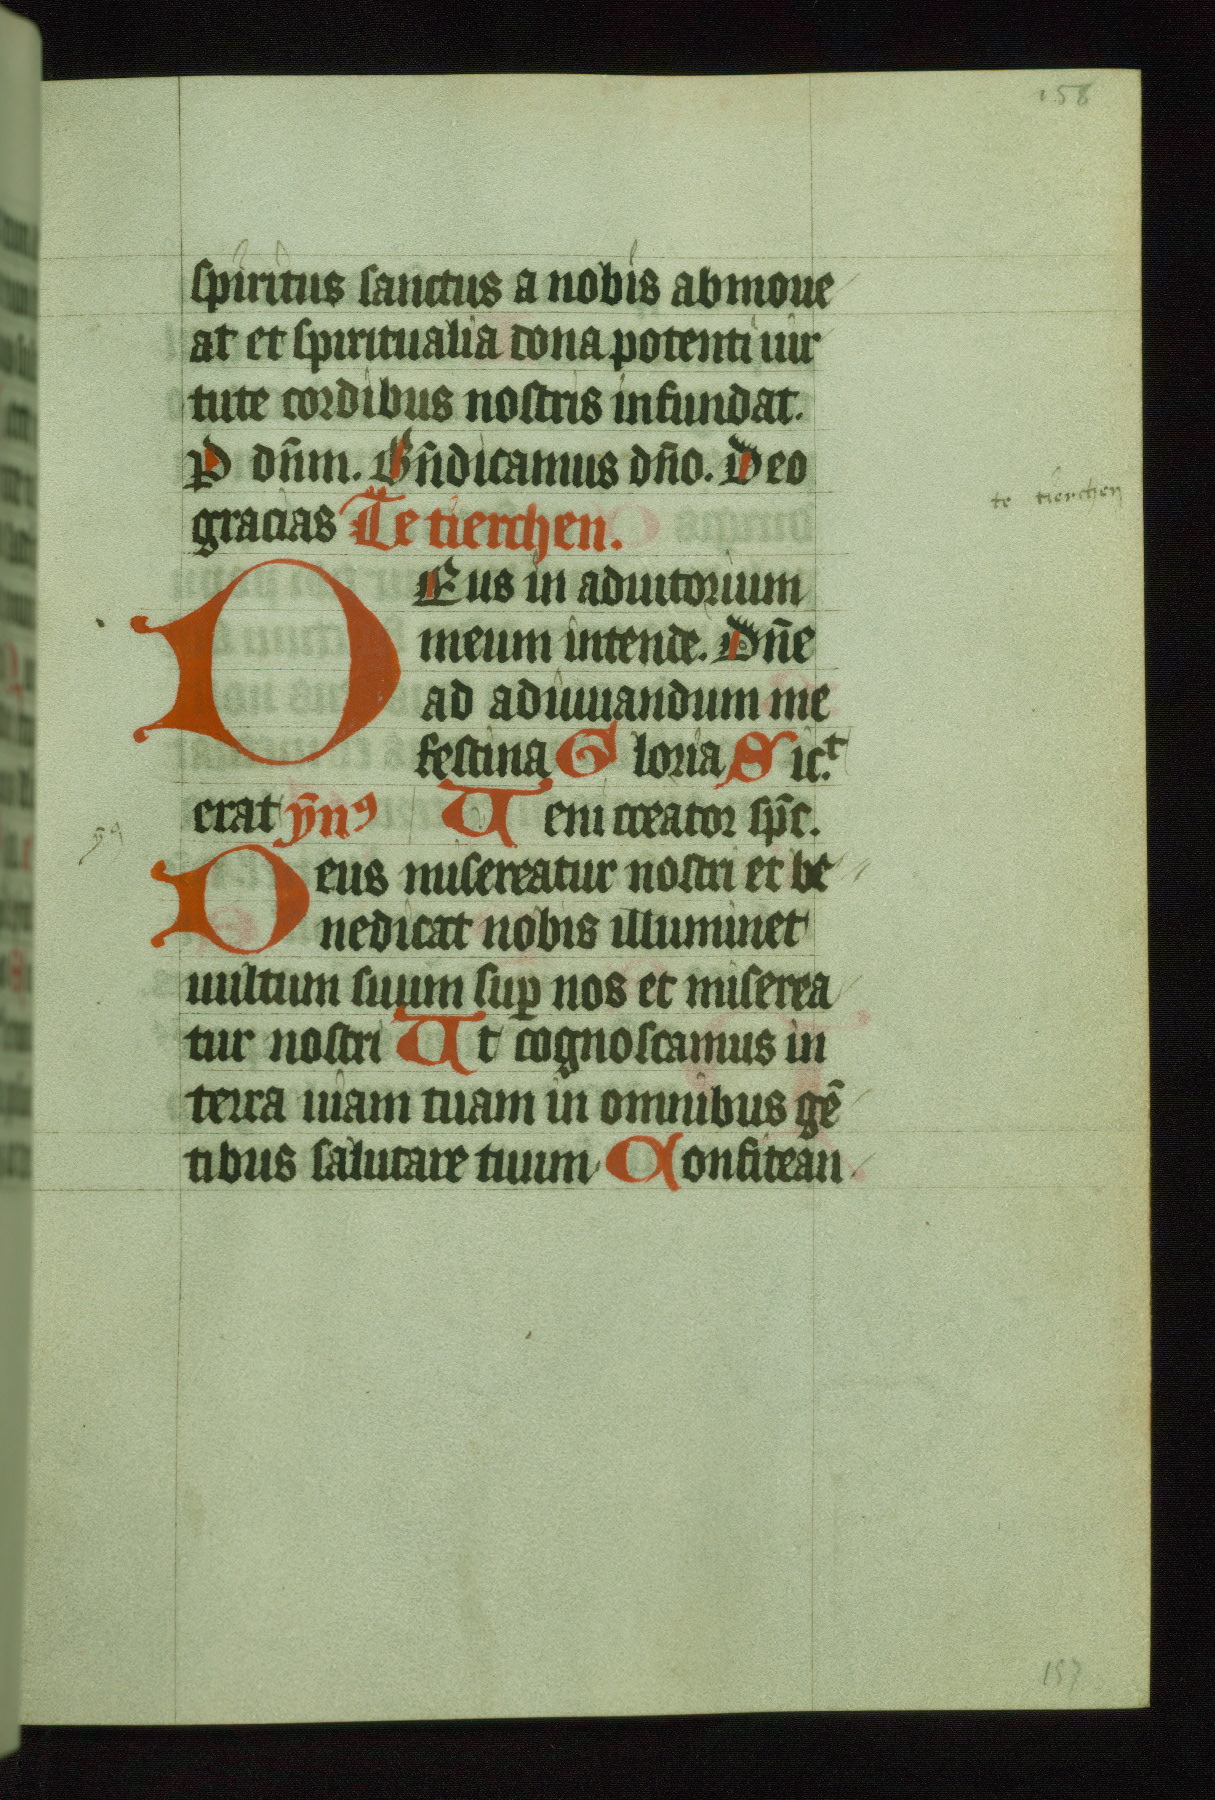 158
spiritus sanctus a nobis abmoue
at et spiritualia dona potenti uir
tute cordibus nostris infundat.
P dn̄m. Bn̄dicamus dn̄o. Deo
gracias Te tierchen.
te tierchen
DEus in adiutorium
meum intende. Dn̄e
ad adiuuandum me
festina Gloria Sic.t
erat ẏn̄ꝰ Ueni creator sp̄c.
ẏꝰ
Deus misereatur nostri et be
nedicat nobis illuminet
uultum suum suꝑ nos et miserea
tur nostri Ut cognoscamus in
terra uiam tuam in omnibus gē
tibus salutare tuum Confitean
157